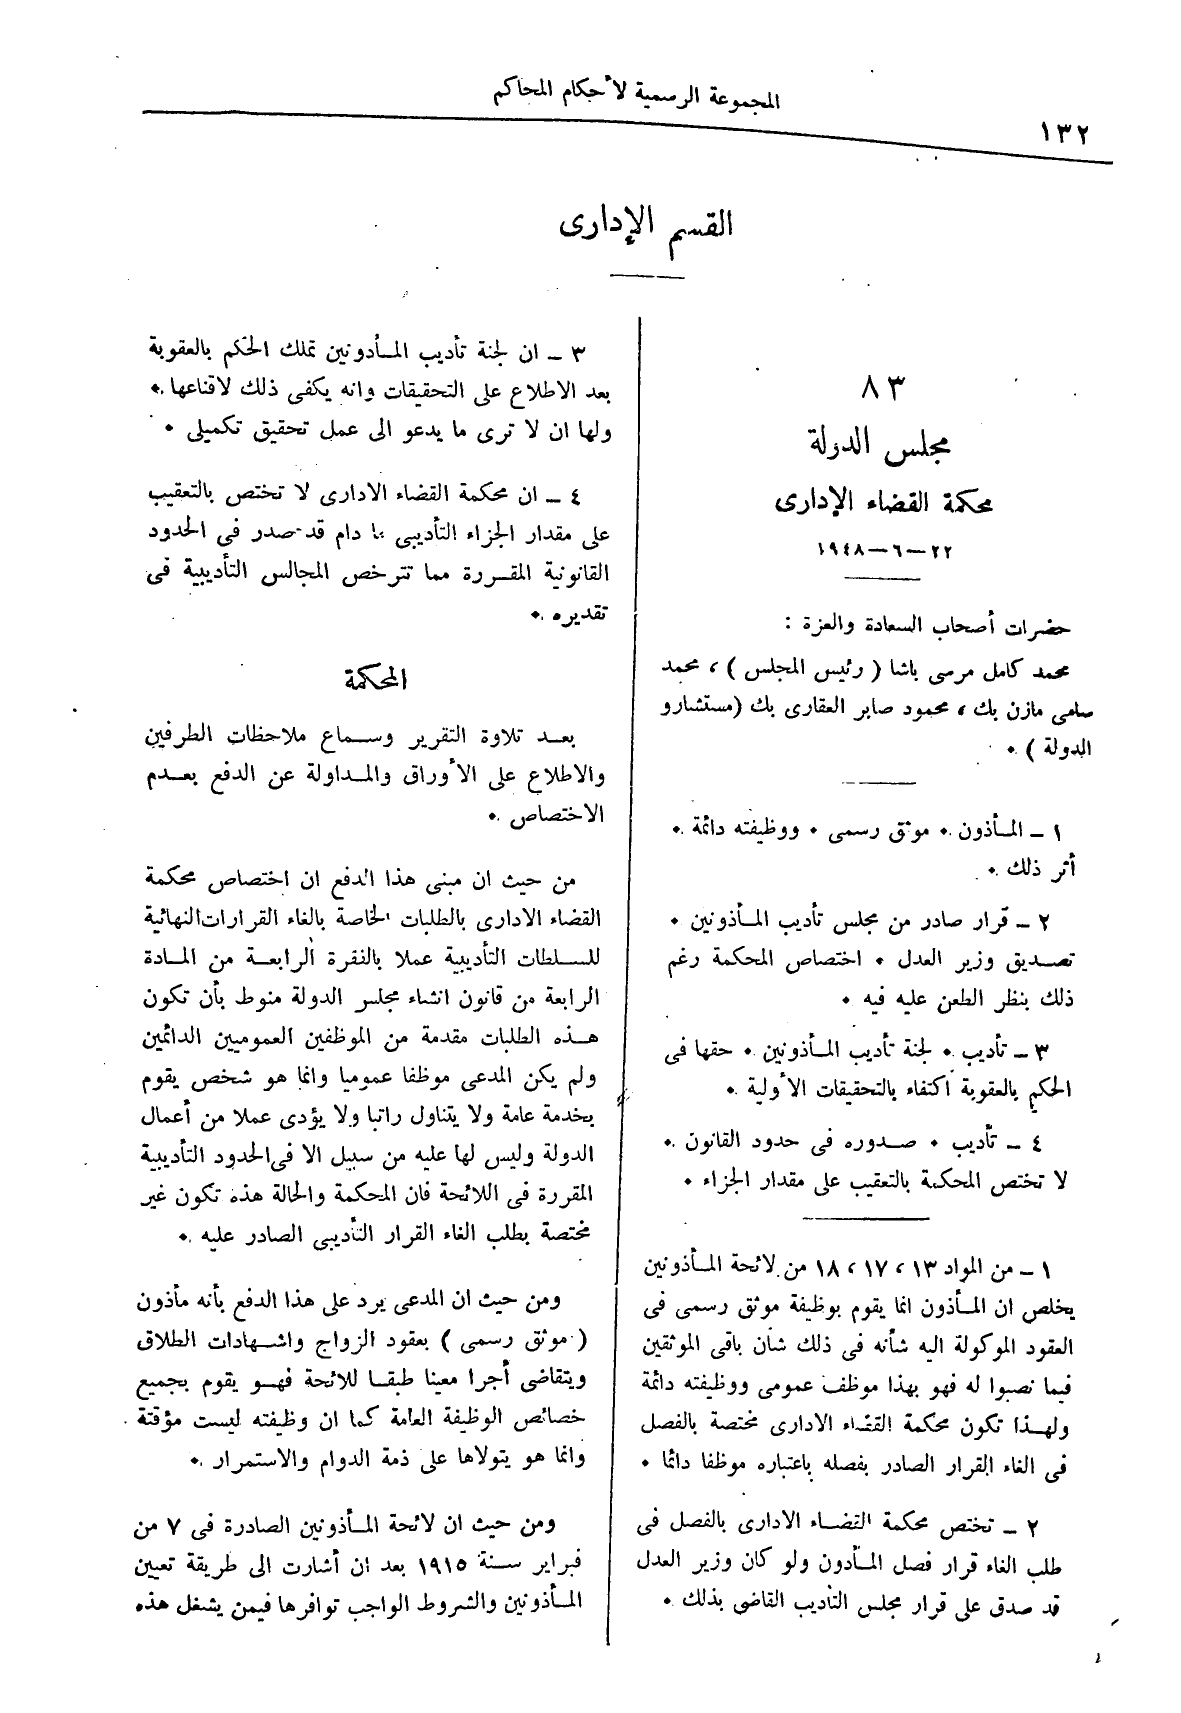 المجموعة الرسمية لأحكام المحاكم
١٣٢
القسم الإدارى
٨٣
مجلس الدولة
محكمة القضاء الإدارى
٢٢-٦-١٩٤٨
حضرات أصحاب السعادة والعزة :
محمد كامل مرسى باشا ( رئيس المجلس ) ، محمد
سامى مازن بك ، محمود صابر العقارى بك (مستشارو
الدولة ) .
١ - المأذون . موثق رسمى . ووظيفته دائمة .
أثر ذلك .
٢ - قرار صادر من مجلس تأديب المأذونين .
تصديق وزير العدل . اختصاص المحكمة رغم
ذلك بنظر الطعن عليه فيه .
٣ - تأديب . لجنة تأديب المأذونين . حقها فى
الحكم بالعقوبة اكتفاء بالتحقيقات الأولية .
٤ - تأديب . صدوره فى حدود القانون .
لا تختص المحكمة بالتعقيب على مقدار الجزاء .
١ - من المواد ١٣ ، ١٧ ، ١٨ من لائحة المأذونين
يخلص ان المأذون انما يقوم بوظيفة موثق رسمى فى
العقود الموكولة اليه شأنه فى ذلك شأن باقى الموثقين
فيما نصبوا له فهو بهذا موظف عمومى ووظيفته دائمة
ولهذا تكون محكمة القضاء الادارى مختصة بالفصل
فى الغاء القرار الصادر بفصله باعتباره موظفا دائما .
٢ - تختص محكمة القضاء الادارى بالفصل فى
طلب الغاء قرار فصل المأذون ولو كان وزير العدل
قد صدق على قرار مجلس التأديب القاضى بذلك .
٣ - ان لجنة تأديب المأذونين تملك الحكم بالعقوبة
بعد الاطلاع على التحقيقات وانه يكفى ذلك لاقناعها .
ولها ان لا ترى ما يدعو الى عمل تحقيق تكميلى .
٤ - ان محكمة القضاء الادارى لا تختص بالتعقيب
على مقدار الجزاء التأديبى ما دام قد صدر فى الحدود
القانونية المقررة مما تترخص المجالس التأديبية فى
تقديره .
المحكمة
بعد تلاوة التقرير وسماع ملاحظات الطرفين
والاطلاع على الأوراق والمداولة عن الدفع بعدم
الاختصاص .
من حيث ان مبنى هذا الدفع ان اختصاص محكمة
القضاء الادارى بالطلبات الخاصة بالغاء القرارات النهائية
للسلطات التأديبية عملا بالفقرة الرابعة من المادة
الرابعة من قانون انشاء مجلس الدولة منوط بأن تكون
هذه الطلبات مقدمة من الموظفين العموميين الدائمين
ولم يكن المدعى موظفا عموميا وانما هو شخص يقوم
بخدمة عامة ولا يتناول راتبا ولا يؤدى عملا من أعمال
الدولة وليس لها عليه من سبيل الا فى الحدود التأديبية
المقررة فى اللائحة فان المحكمة والحالة هذه تكون غير
مختصة بطلب الغاء القرار التأديبى الصادر عليه .
ومن حيث ان المدعى يرد على هذا الدفع بأنه مأذون
( موثق رسمى ) بعقود الزواج واشهادات الطلاق
ويتقاضى أجرا معينا طبقا للائحة فهو يقوم بجميع
خصائص الوظيفة العامة كما ان وظيفته ليست مؤقتة
وانما هو يتولاها على ذمة الدوام والاستمرار .
ومن حيث ان لائحة المأذونين الصادرة فى ٧ من
فبراير سنة ١٩١٥ بعد ان أشارت الى طريقة تعيين
المأذونين والشروط الواجب توافرها فيمن يشغل هذه